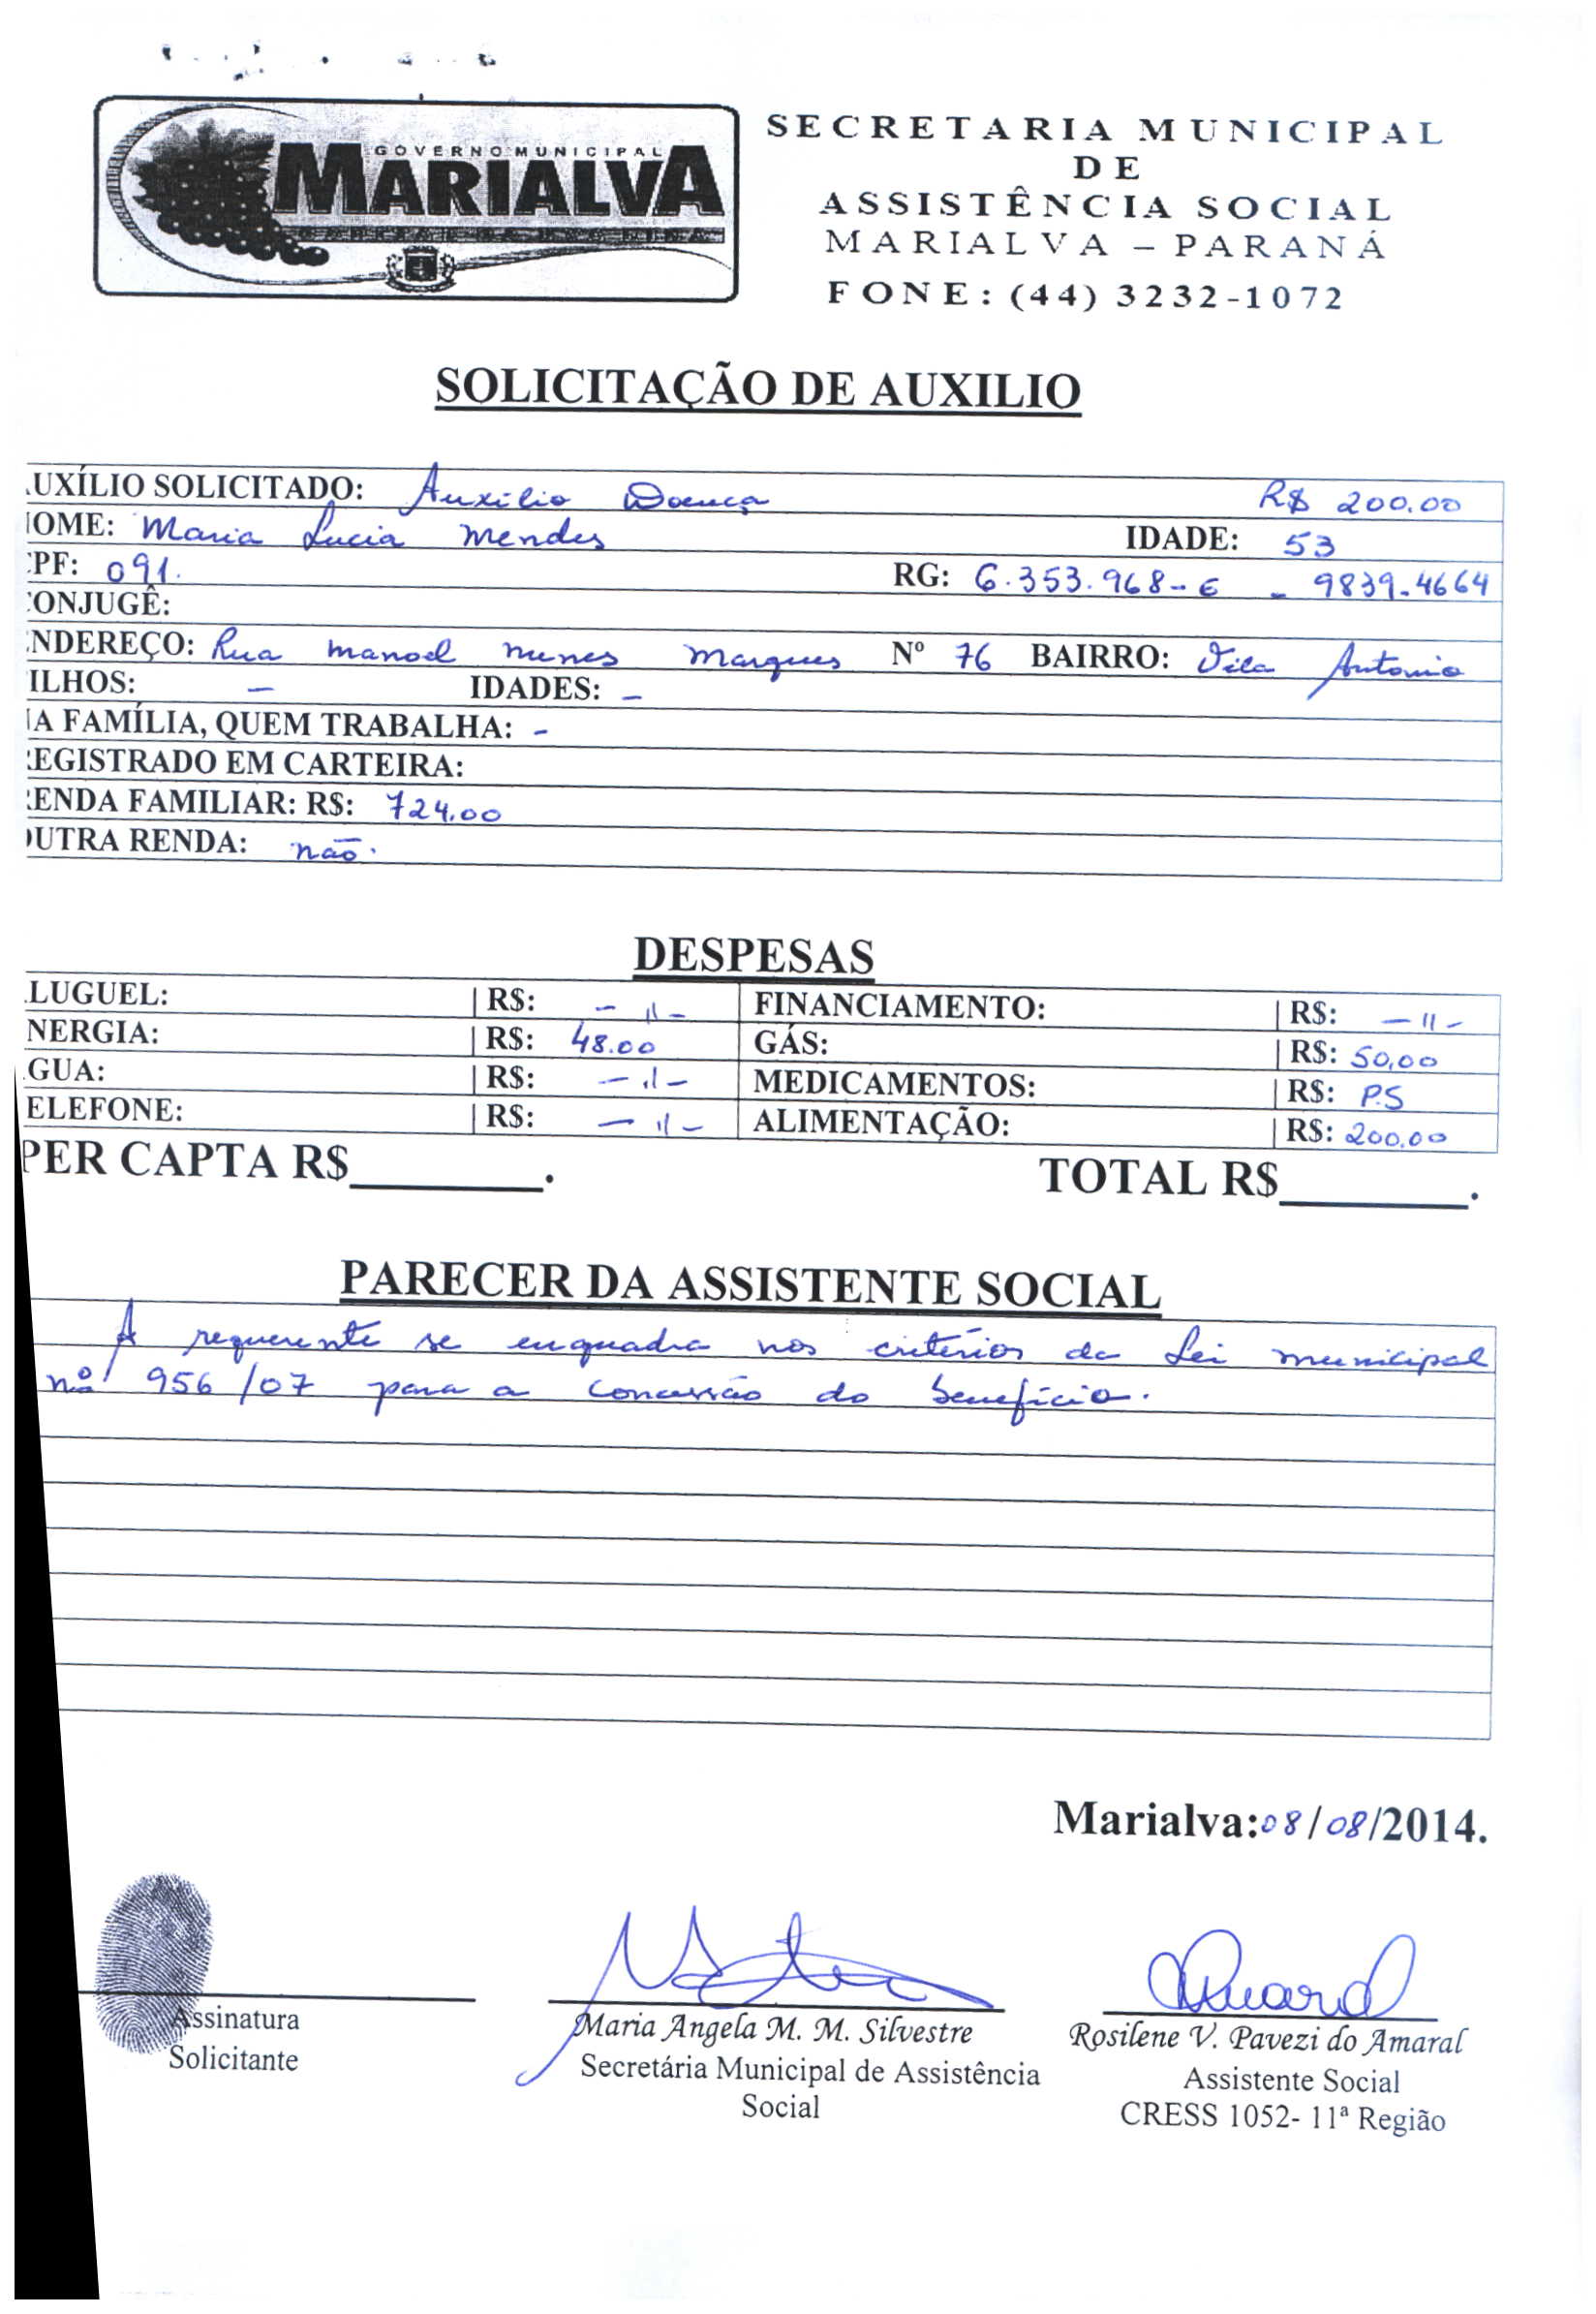 GOVERNO MUNICIPAL
MARIALVA
SECRETARIA MUNICIPAL
DE
ASSISTÊNCIA SOCIAL
MARIALVA – PARANÁ
FONE: (44) 3232-1072
SOLICITAÇÃO DE AUXILIO
UXÍLIO SOLICITADO: Auxílio Doença R$ 200,00
OME: Maria Lucia Mendes IDADE: 53
PF: 091. RG: 6.353.968-6 - 9839-4664
ONJUGÊ:
NDEREÇO: Rua Manoel Nunes Marques Nº 76 BAIRRO: Vila Antonio
ILHOS: - IDADES: -
A FAMÍLIA, QUEM TRABALHA: -
EGISTRADO EM CARTEIRA:
ENDA FAMILIAR: R$: 724,00
UTRA RENDA: não.
DESPESAS
LUGUEL: R$: - 11 - FINANCIAMENTO: R$: - 11 -
NERGIA: R$: 48.00 GÁS: R$: 50,00
GUA: R$: - 11 - MEDICAMENTOS: R$: P.S
ELEFONE: R$: - 11 - ALIMENTAÇÃO: R$: 200,00
PER CAPTA R$________. TOTAL R$________.
PARECER DA ASSISTENTE SOCIAL
A requerente se enquadra nos critérios da Lei municipal
nº 956/07 para a concessão do benefício.
Marialva: 08/08/2014.
Assinatura
Solicitante
Maria Angela M. M. Silvestre
Secretária Municipal de Assistência
Social
Rosilene V. Pavezi do Amaral
Assistente Social
CRESS 1052- 11ª Região